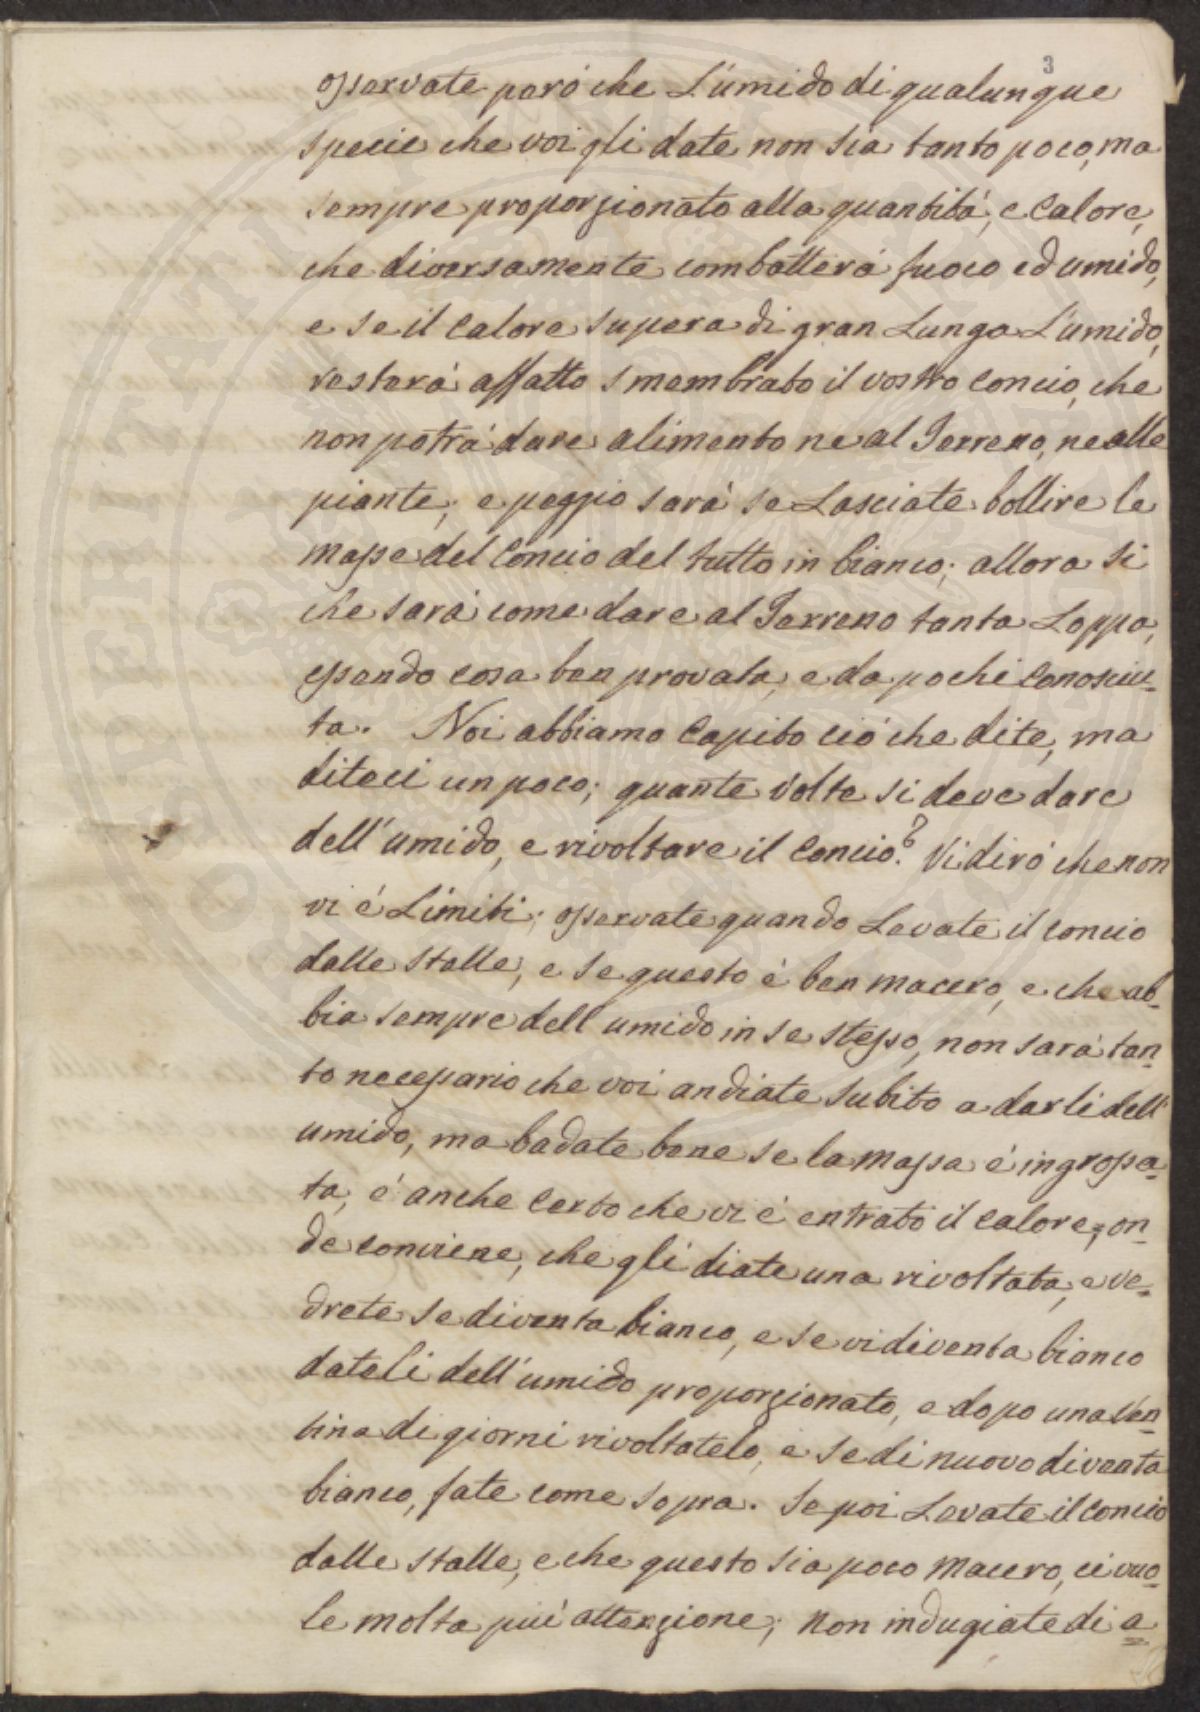 3
osservate peró che L'umido di qualunque
specie che voi gli date non sia tanto poco, ma
sempre proporzionato alla quantitá, e Calore,
che diversamente combatterá fuoco ed umido,
e se il Calore supera di gran Lunga L'umido,
resterá affatto smembrato il vostro Concio, che
non potrá dare alimento ne al Terreno, ne alle
piante; e peggio sará se Lasciate bollire le
masse del Concio del tutto in bianco; allora si
che sará come dare al Terreno tanta Loppa,
essendo cosa ben provata, e da pochi Conosciu-
ta. Noi abbiamo Capito ció che dite, ma
diteci un poco; quante volte si deve dare
dell'umido, e rivoltare il Concio? Vi diró che non
vi é Limiti; osservate quando Levate il Concio
dalle stalle, e se questo é ben macero, e che ab-
bia sempre dell'umido in se stesso, non sará tan-
to necessario che voi andiate subito a darli dell'
umido, ma badate bene se la massa é ingrossa-
ta, é anche Certo che vi é entrato il Calore, on-
de conviene, che gli diate una rivoltata, e ve-
drete se diventa bianco, e se vi diventa bianco
dateli dell'umido proporzionato, e dopo una ven-
tina di giorni rivoltatelo, e se di nuovo diventa
bianco, fate come sopra. Se poi Levate il Concio
dalle stalle, e che questo sia poco Macero, ci vuo-
le molta piú attenzione; non indugiate di a